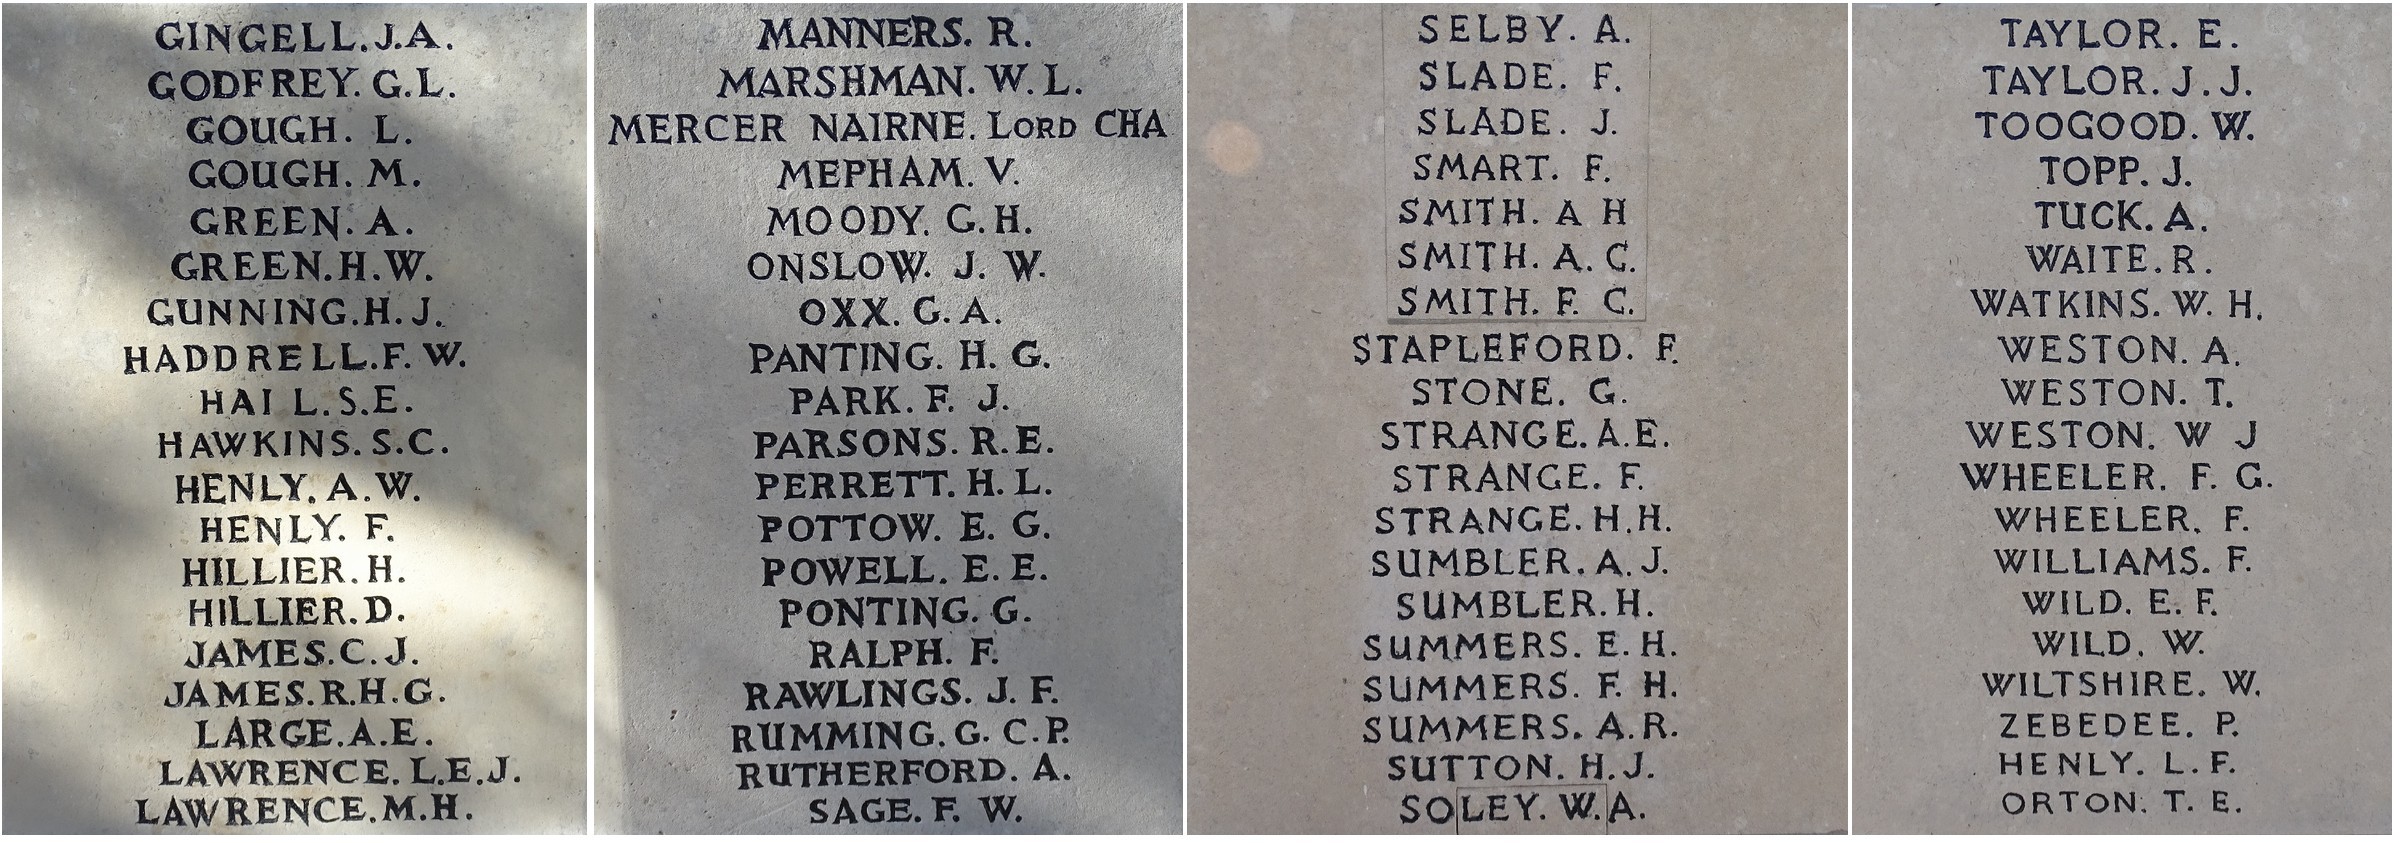 GINGELL. J.A.
GODFREY. G.L.
GOUGH. L.
GOUGH. M.
GREEN. A.
GREEN. H.W.
GUNNING. H. J.
HADDRELL. F. W.
HAI L. S.E.
HAWKINS. S.C.
HENLY. A.W.
HENLY. F.
HILLIER. H.
HILLIER. D.
JAMES. C. J.
JAMES. R.H.G.
LARGE. A.E.
LAWRENCE. L.E.J.
LAWRENCE. M.H.
MANNERS. R.
MARSHMAN. W. L.
MERCER NAIRNE. LORD CHA
MEPHAM. V.
MOODY. G. H.
ONSLOW. J. W.
OXX. G. A.
PANTING. H. G.
PARK. F. J.
PARSONS. R. E.
PERRETT. H. L.
POTTOW. E. G.
POWELL. E. E.
PONTING. G.
RALPH. F.
RAWLINGS. J. F.
RUMMING. G. C. P.
RUTHERFORD. A.
SAGE. F. W.
SELBY. A.
SLADE. F.
SLADE. J.
SMART. F.
SMITH. A H
SMITH. A. C.
SMITH. F. C.
STAPLEFORD. F.
STONE. G.
STRANGE. A.E.
STRANGE. F.
STRANGE. H.H.
SUMBLER. A. J.
SUMBLER. H.
SUMMERS. E. H.
SUMMERS. F. H.
SUMMERS. A. R.
SUTTON. H. J.
SOLEY. W. A.
TAYLOR. E.
TAYLOR. J. J.
TOOGOOD. W.
TOPP. J.
TUCK. A.
WAITE. R.
WATKINS. W. H.
WESTON. A.
WESTON. T.
WESTON. W J
WHEELER. F. G.
WHEELER. F.
WILLIAMS. F.
WILD. E. F.
WILD. W.
WILTSHIRE. W.
ZEBEDEE. P.
HENLY. L. F.
ORTON. T. E.